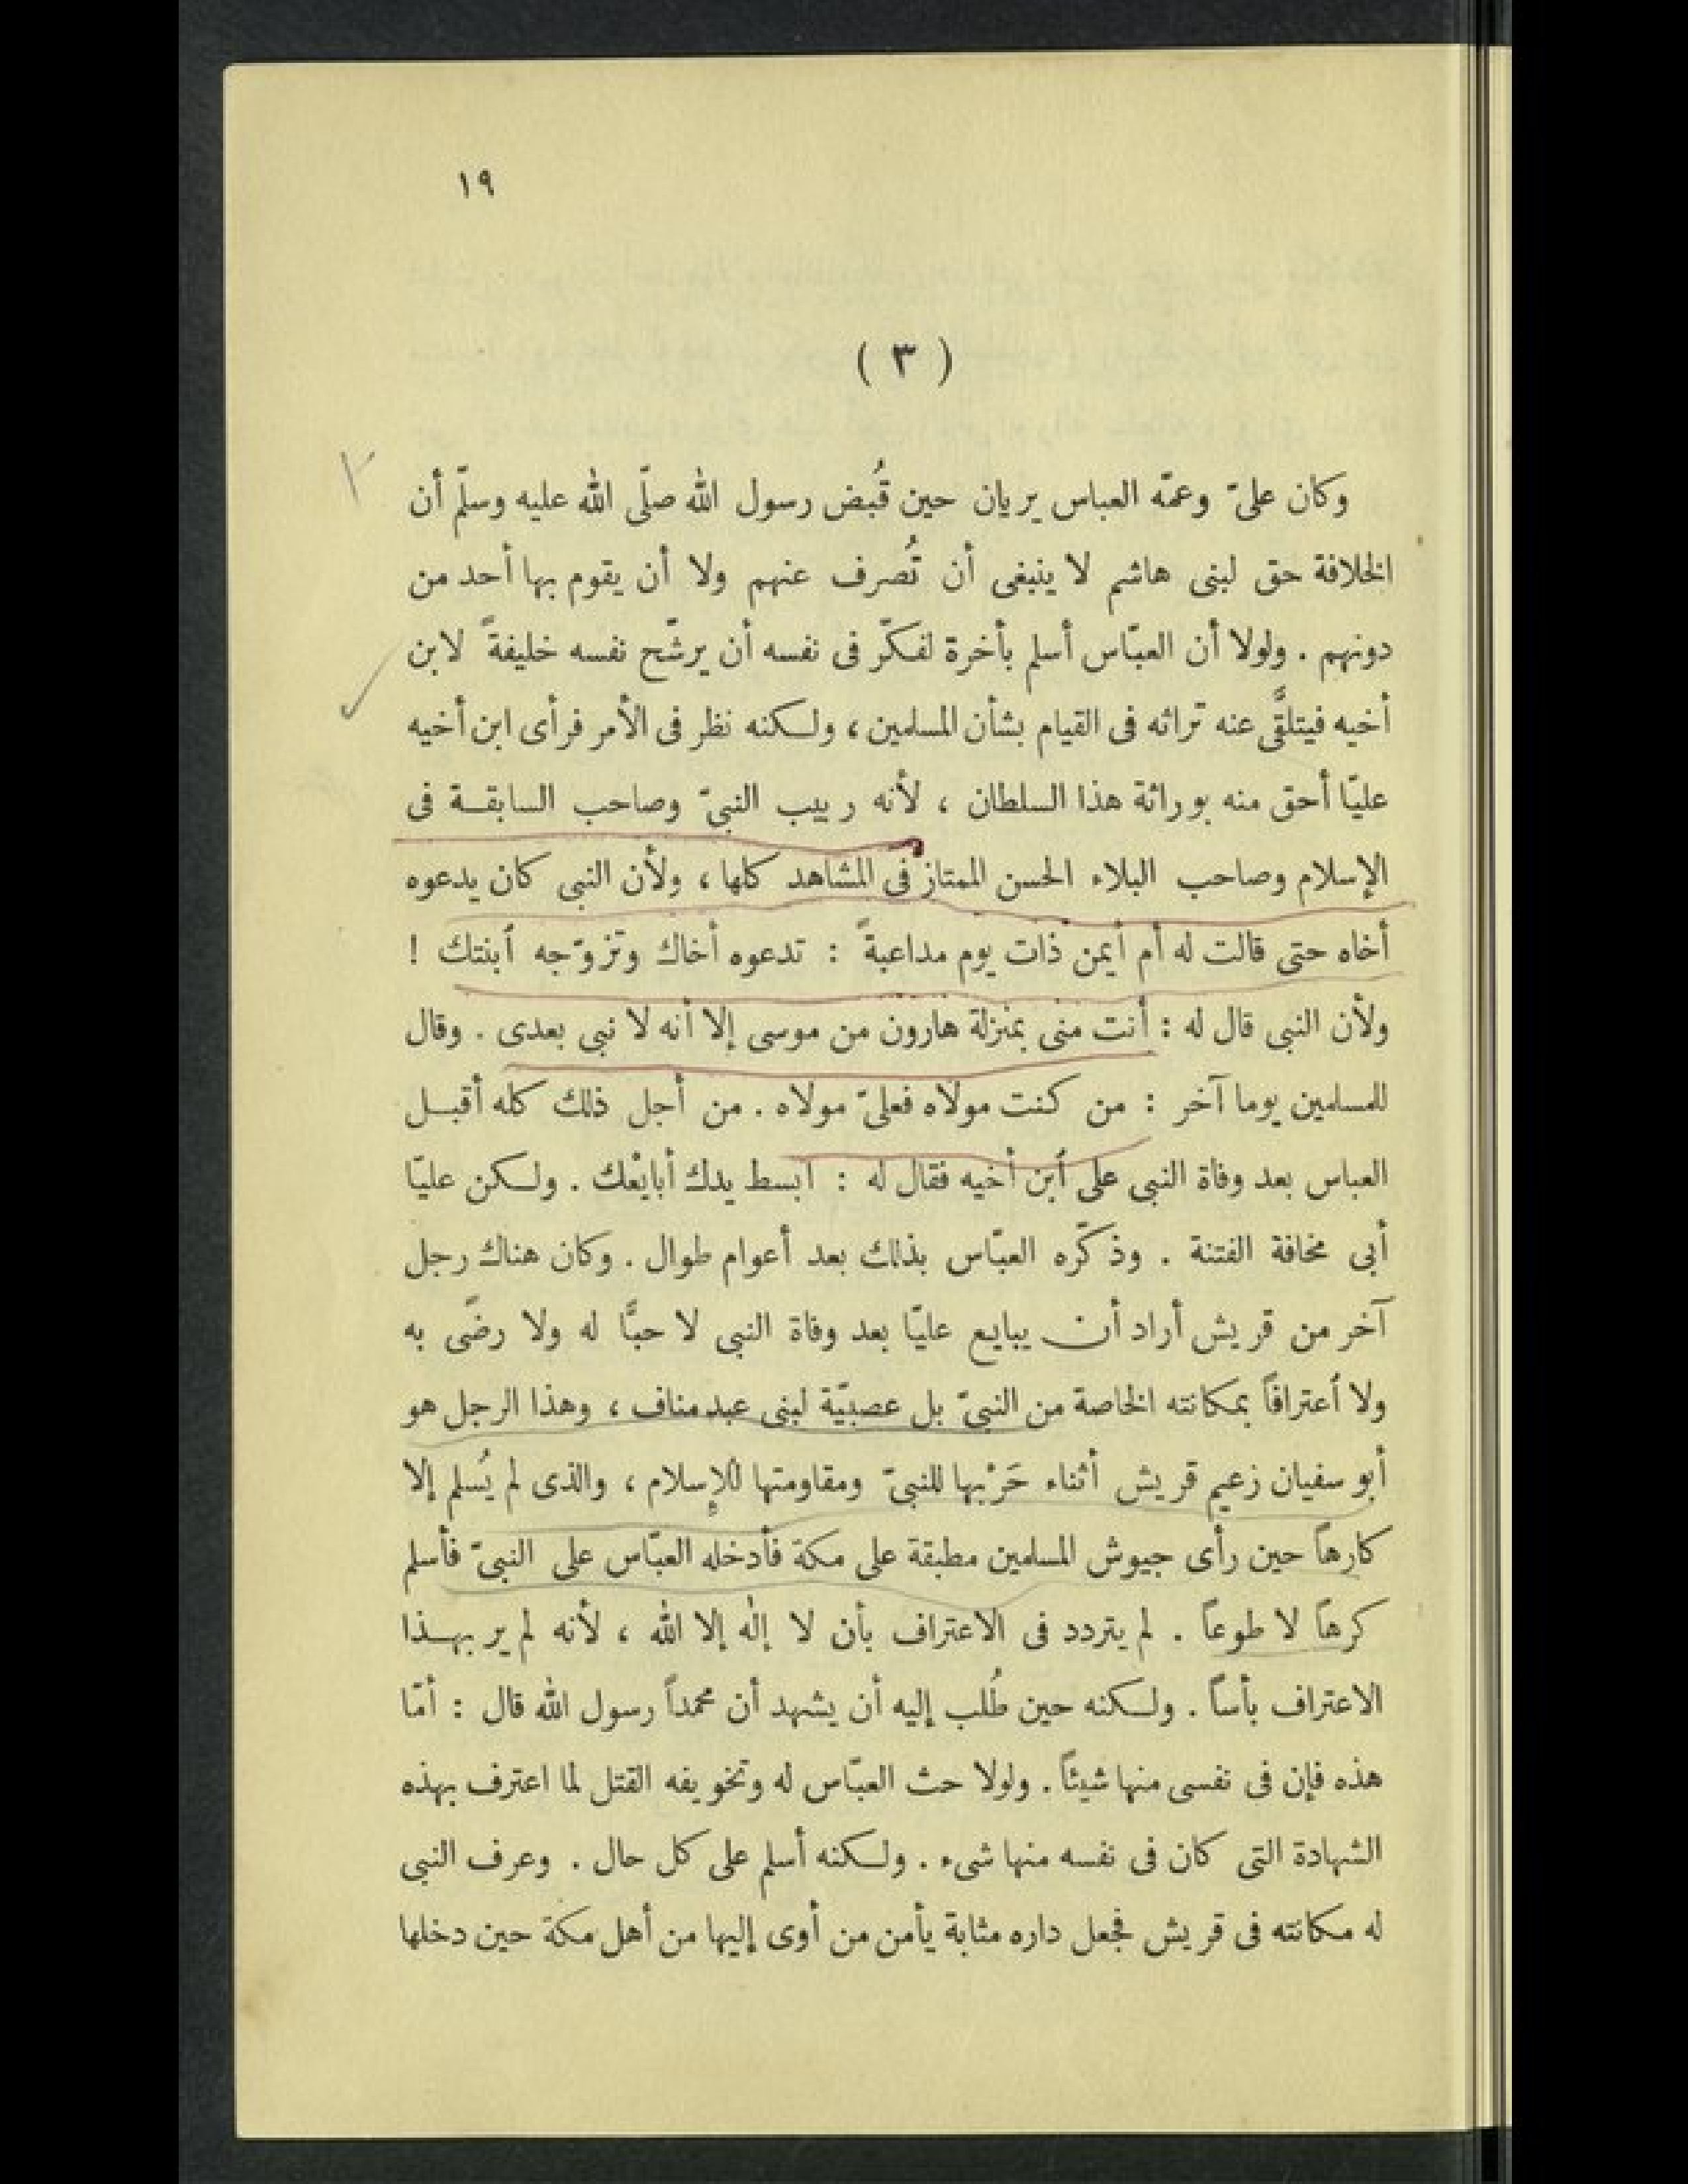 ١٩
( ٣ )
٢
وكان علىّ وعمّه العباس يريان حين قُبض رسول الله صلّى الله عليه وسلّم أن
الخلافة حق لبنى هاشم لا ينبغى أن تُصرف عنهم ولا أن يقوم بها أحد من
دونهم . ولولا أن العبّاس أسلم بأخرة لفكّر فى نفسه أن يرشّح نفسه خليفةً لابن
أخيه فيتلقَّى عنه تراثه فى القيام بشأن المسلمين ، ولكنه نظر فى الأمر فرأى ابن أخيه
عليّا أحق منه بوراثة هذا السلطان ، لأنه ربيب النبىّ وصاحب السابقة فى
الإسلام وصاحب البلاء الحسن الممتاز فى المشاهد كلها ، ولأن النبى كان يدعوه
أخاه حتى قالت له أم أيمن ذات يوم مداعبةً : تدعوه أخاك وتزوّجه ٱبنتك !
ولأن النبى قال له : أنت منى بمنزلة هارون من موسى إلا أنه لا نبى بعدى . وقال
للمسلمين يوما آخر : من كنت مولاه فعلىّ مولاه . من أجل ذلك كله أقبل
العباس بعد وفاة النبى على ٱبن أخيه فقال له : ٱبسط يدك أبايْعك . ولكن عليّا
أبى مخافة الفتنة . وذكّره العبّاس بذلك بعد أعوام طوال . وكان هناك رجل
آخر من قريش أراد أن يبايع عليّا بعد وفاة النبى لا حبًّا له ولا رضًى به
ولا ٱعترافاً بمكانته الخاصة من النبىّ بل عصبيّة لبنى عبد مناف ، وهذا الرجل هو
أبو سفيان زعيم قريش أثناء حَرْبها للنبىّ ومقاومتها للإسلام ، والذى لم يُسلم إلا
كارهاً حين رأى جيوش المسلمين مطبقة على مكة فأدخله العبّاس على النبىّ فأسلم
كرهاً لا طوعاً . لم يتردد فى الاعتراف بأن لا إله إلا الله ، لأنه لم ير بهذا
الاعتراف بأساً . ولكنه حين طُلب إليه أن يشهد أن محمداً رسول الله قال : أمّا
هذه فإن فى نفسى منها شيئاً . ولولا حث العبّاس له وتخويفه القتل لما اعترف بهذه
الشهادة التى كان فى نفسه منها شىء . ولكنه أسلم على كل حال . وعرف النبى
له مكانته فى قريش فجعل داره مثابة يأمن من أوى إليها من أهل مكة حين دخلها